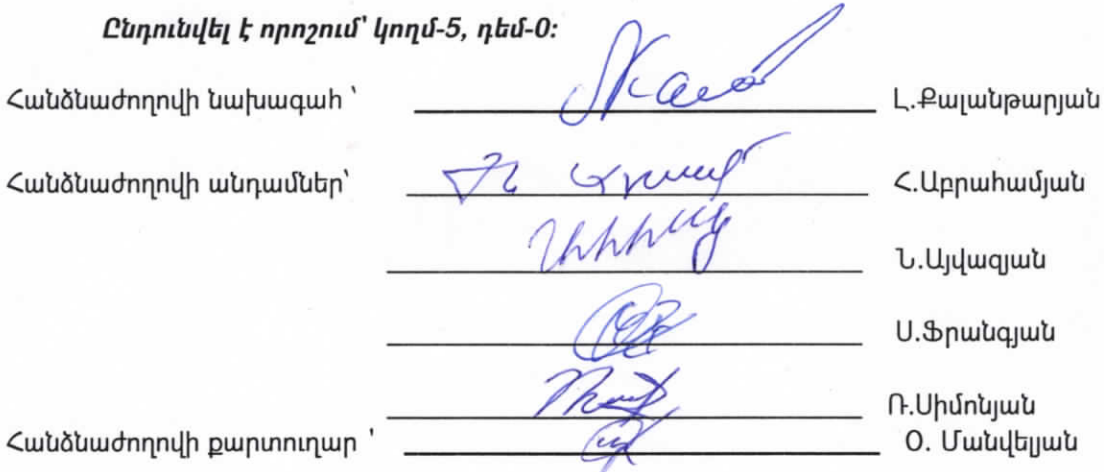 Ընդունվել է որոշում՝ կողմ-5, դեմ-0:
Հանձնաժողովի նախագահ ՝ Լ.Քալանթարյան
Հանձնաժողովի անդամներ՝ Հ.Աբրահամյան
Ն.Այվազյան
Ս.Ֆրանգյան
Ռ.Սիմոնյան
Հանձնաժողովի քարտուղար ՝ Օ. Մանվելյան